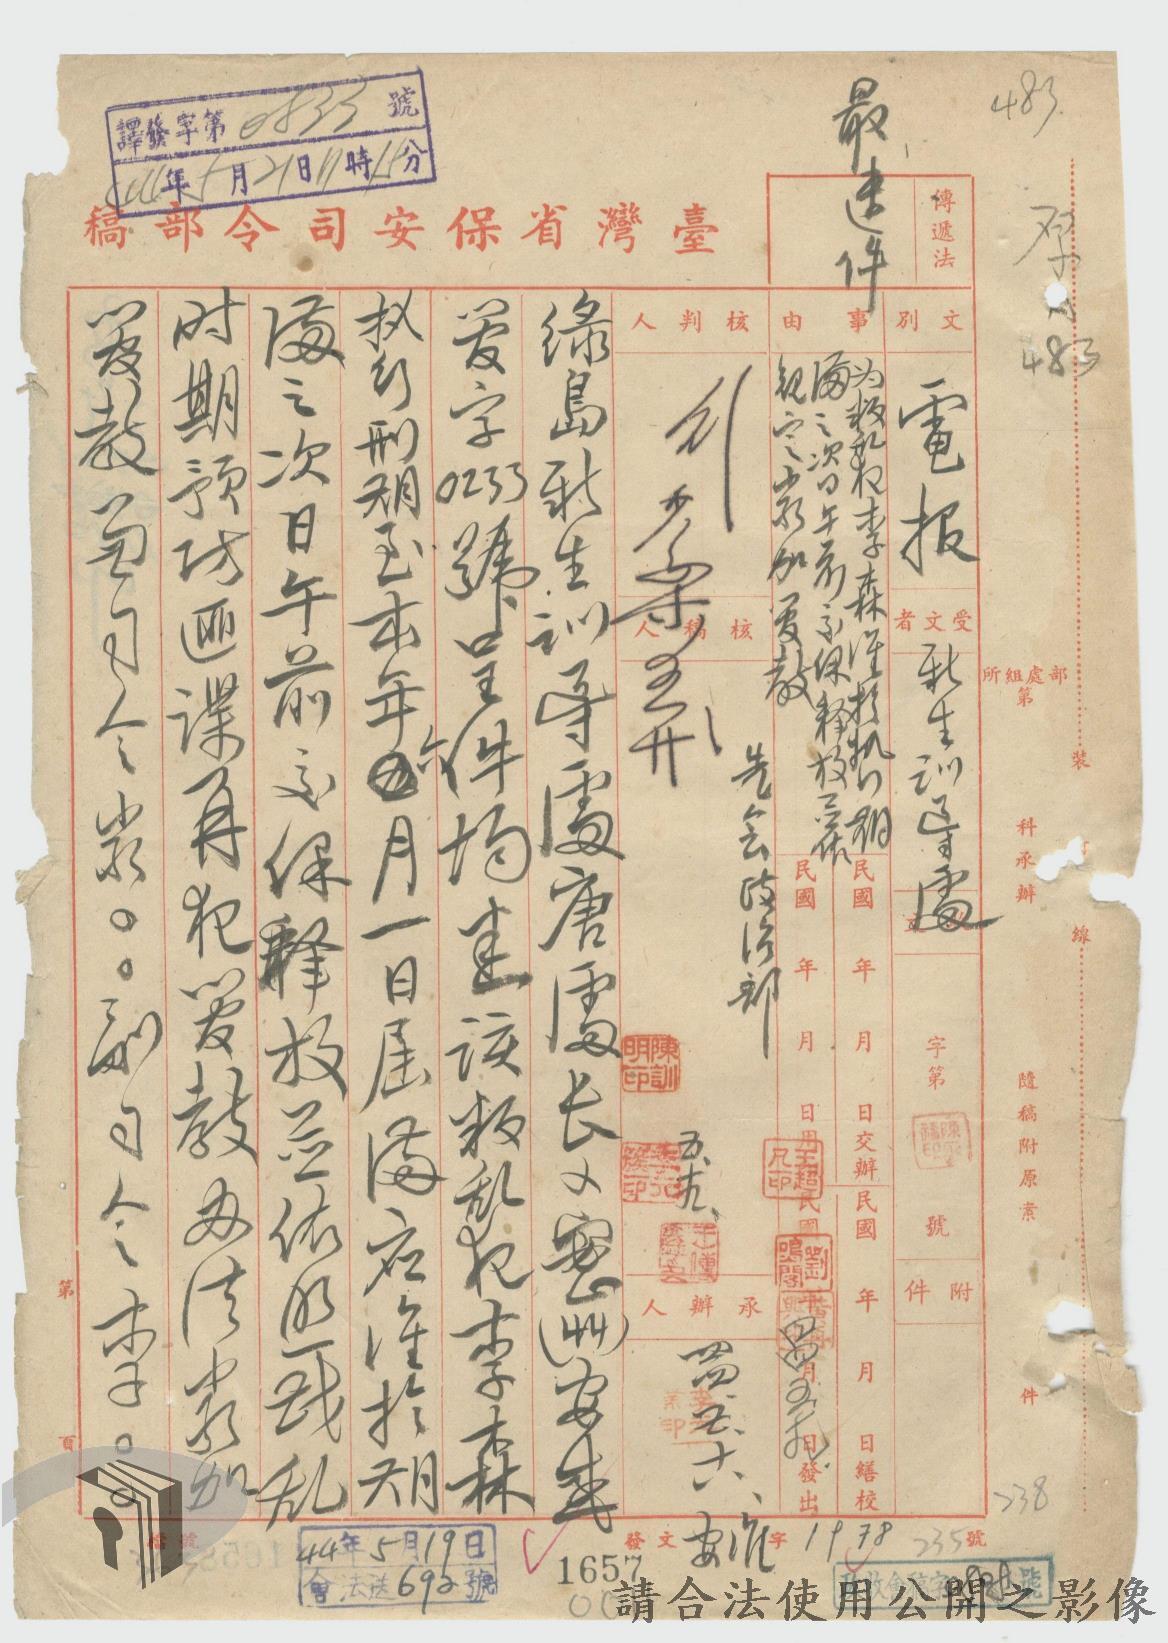 483.
483
譯發字第0833號
44年5月21日17時15分
臺灣省保安司令部稿
最速件
傳遞法
文別
電报
受文者
新生訓導處
字第
號
附件
事由
为叛乱犯李森准於執行期
滿之次日午前交保釋放並依
規定嚴加管教
核判人
核稿人
承辦人
先会政治部
民國 年 月 日交辦
民國 年 月 日繕校
民國 年 月 日發出
陳訓明印
王超凡印
部處組所
第
科承辦
裝
訂
線
隨稿附原案
件
綠島新生訓導處唐處長:密(卅)安感
管字0233號呈件均悉該叛乱犯李森
执行刑期至本年六月一日屆滿應准於期
滿之次日午前交保釋放並依照戡乱
时期預防匪諜再犯管教办法嚴加
管教兼司令嚴○○副司令李○○
第
頁
44年5月19日
會法送692號
發文
字
1978
235
號
238
1657
請合法使用公開之影像